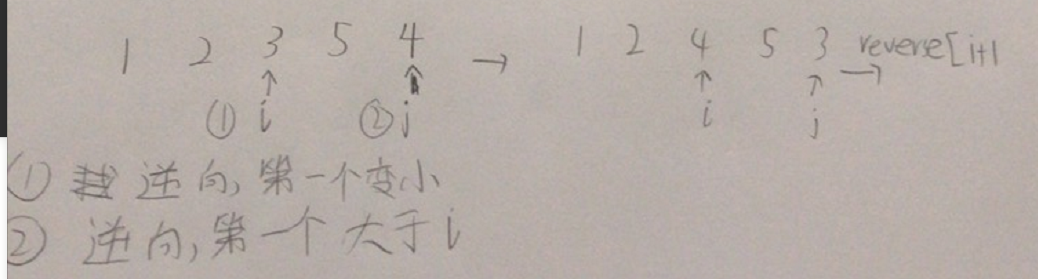 1 2 3 5 4 → 1 2 4 5 3 → reverse[i+1
↑ ↑ ↑ ↑
① i ② j i j
① 逆向,第一个变小
② 逆向,第一个大于i